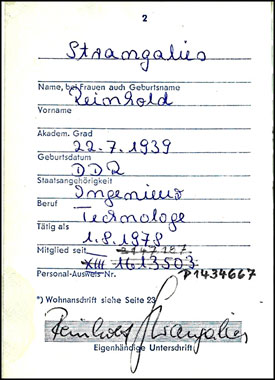 2
Strangalies
Name, bei Frauen auch Geburtsname
Reinhold
Vorname
Akadem. Grad
22.7.1939
Geburtsdatum
DDR
Staatsangehörigkeit
Ingenieur
Beruf
Technologe
Tätig als
1.8.1978
Mitglied seit
XIII 1613503 P1434667
Personal-Ausweis Nr.
*) Wohnanschrift siehe Seite 23
Reinhold Strangalies
Eigenhändige Unterschrift